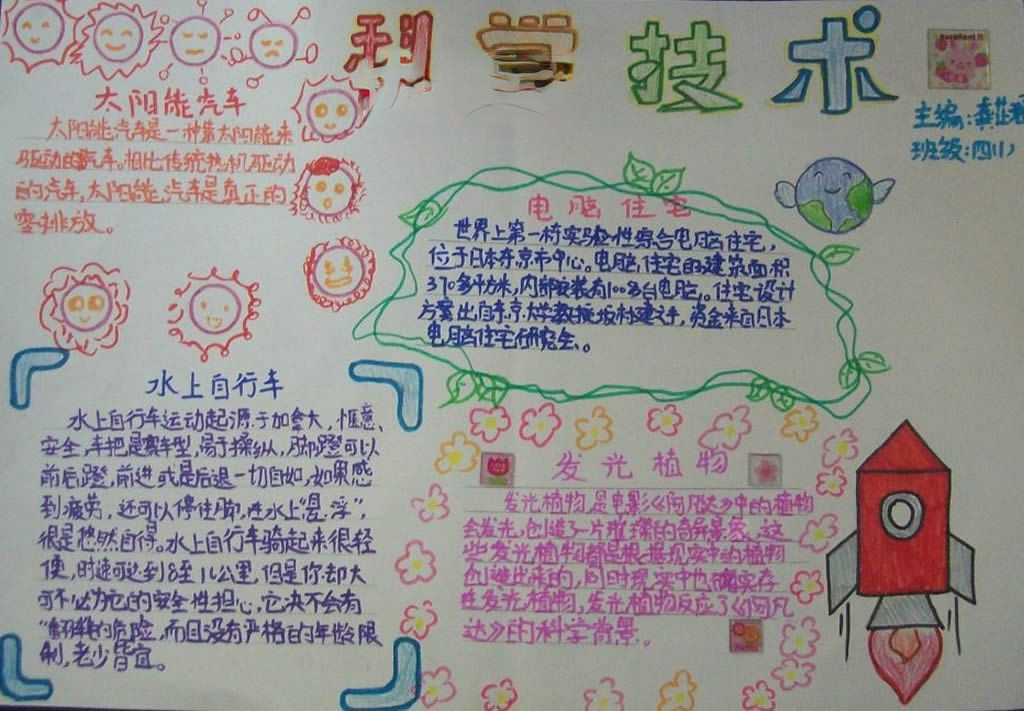 科学技术
Excellent!!
主编:龚芷
班级:四(1)
太阳能汽车
太阳能汽车是一种靠太阳能来
驱动的汽车。相比传统热机驱动
的汽车,太阳能汽车是真正的
零排放。
电脑住宅
世界上第一栋实验性综合电脑住宅,
位于日本东京市中心。电脑住宅的建筑面积
370多平方米,内部安装有100多台电脑。住宅设计
方案出自东京大学教授坂村建之手,资金来自日本
电脑住宅研究会。
水上自行车
水上自行车运动起源于加拿大,惬意、
安全,车把是赛车型,易于操纵,脚蹬可以
前后蹬,前进或是后退一切自如,如果感
到疲劳,还可以停住脚,在水上“漫浮”,
很是悠然自得。水上自行车骑起来很轻
便,时速可达到8至11公里,但是你却大
可不必为它的安全性担心,它决不会有
“翻船”的危险,而且没有严格的年龄限
制,老少皆宜。
发光植物
发光植物,是电影《阿凡达》中的植物
会发光,创造了一片璀璨的奇异景象,这
些发光植物都是根据现实中的植物
创造出来的,同时现实中也确实存
在发光植物,发光植物反应了《阿凡
达》的科学背景。